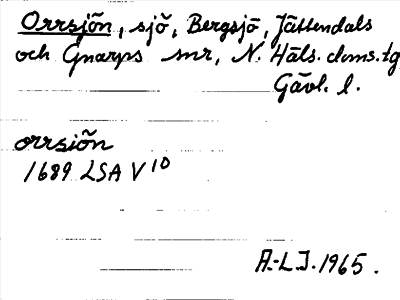 Orrsjön, sjö, Bergsjö, Jättendals
och Gnarps snr, N. Häls. doms.tg
Gävl. l.
orrsiön
1689 LSA V 10
A.-L.J. 1965.